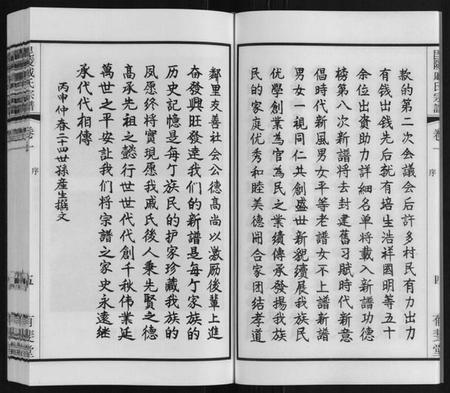 款的第二次会議会后許多村民有力出力
有钱出钱先后就有培生浩祥國明等五十
余位出資助力詳細名单將載入新譜功德
榜第八次新譜將去封建舊习賦時代新意
倡時代新風男女平等老譜女不上譜新譜
男女一視同仁共創盛世新貌續展我族民
优學創業為官為民之業績傳承發揚我族
民的家庭优秀和睦美德閤合家团结孝道
卷一
序
四
有斐堂
鄰里友善社会公德高尚以激励後輩上進
奋發興旺發達我们的新譜是每个家族的
历史記憶是每个族民的护家珍藏我族的
夙愿终将實現愿我戚氏後人秉先賢之德
高承先祖之懿行世世代代創千秋伟業延
萬世之平安让我们将宗譜之家史永遠継
承代代相傳
丙申仲春二十四世孫産生撰文
毘陵戚氏宗譜
卷一
序
五
有斐堂